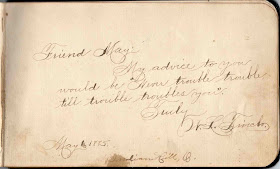 Friend May:
My advice to you
would be "Never trouble trouble
till trouble troubles you".
Truly
May 6, 1885.